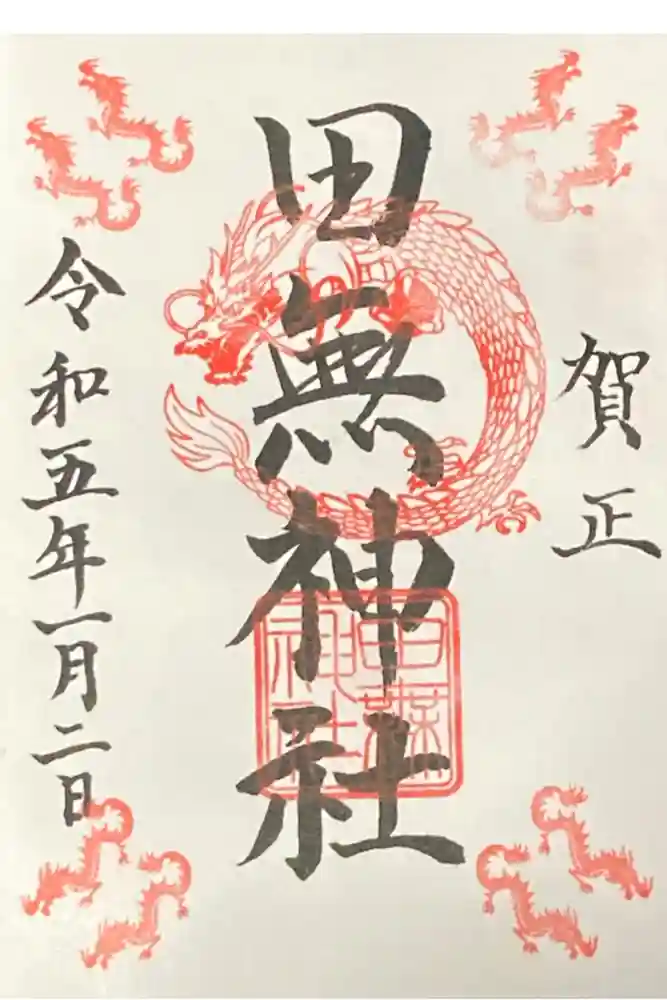 賀正
田無神社
田無神社
令和五年一月二日